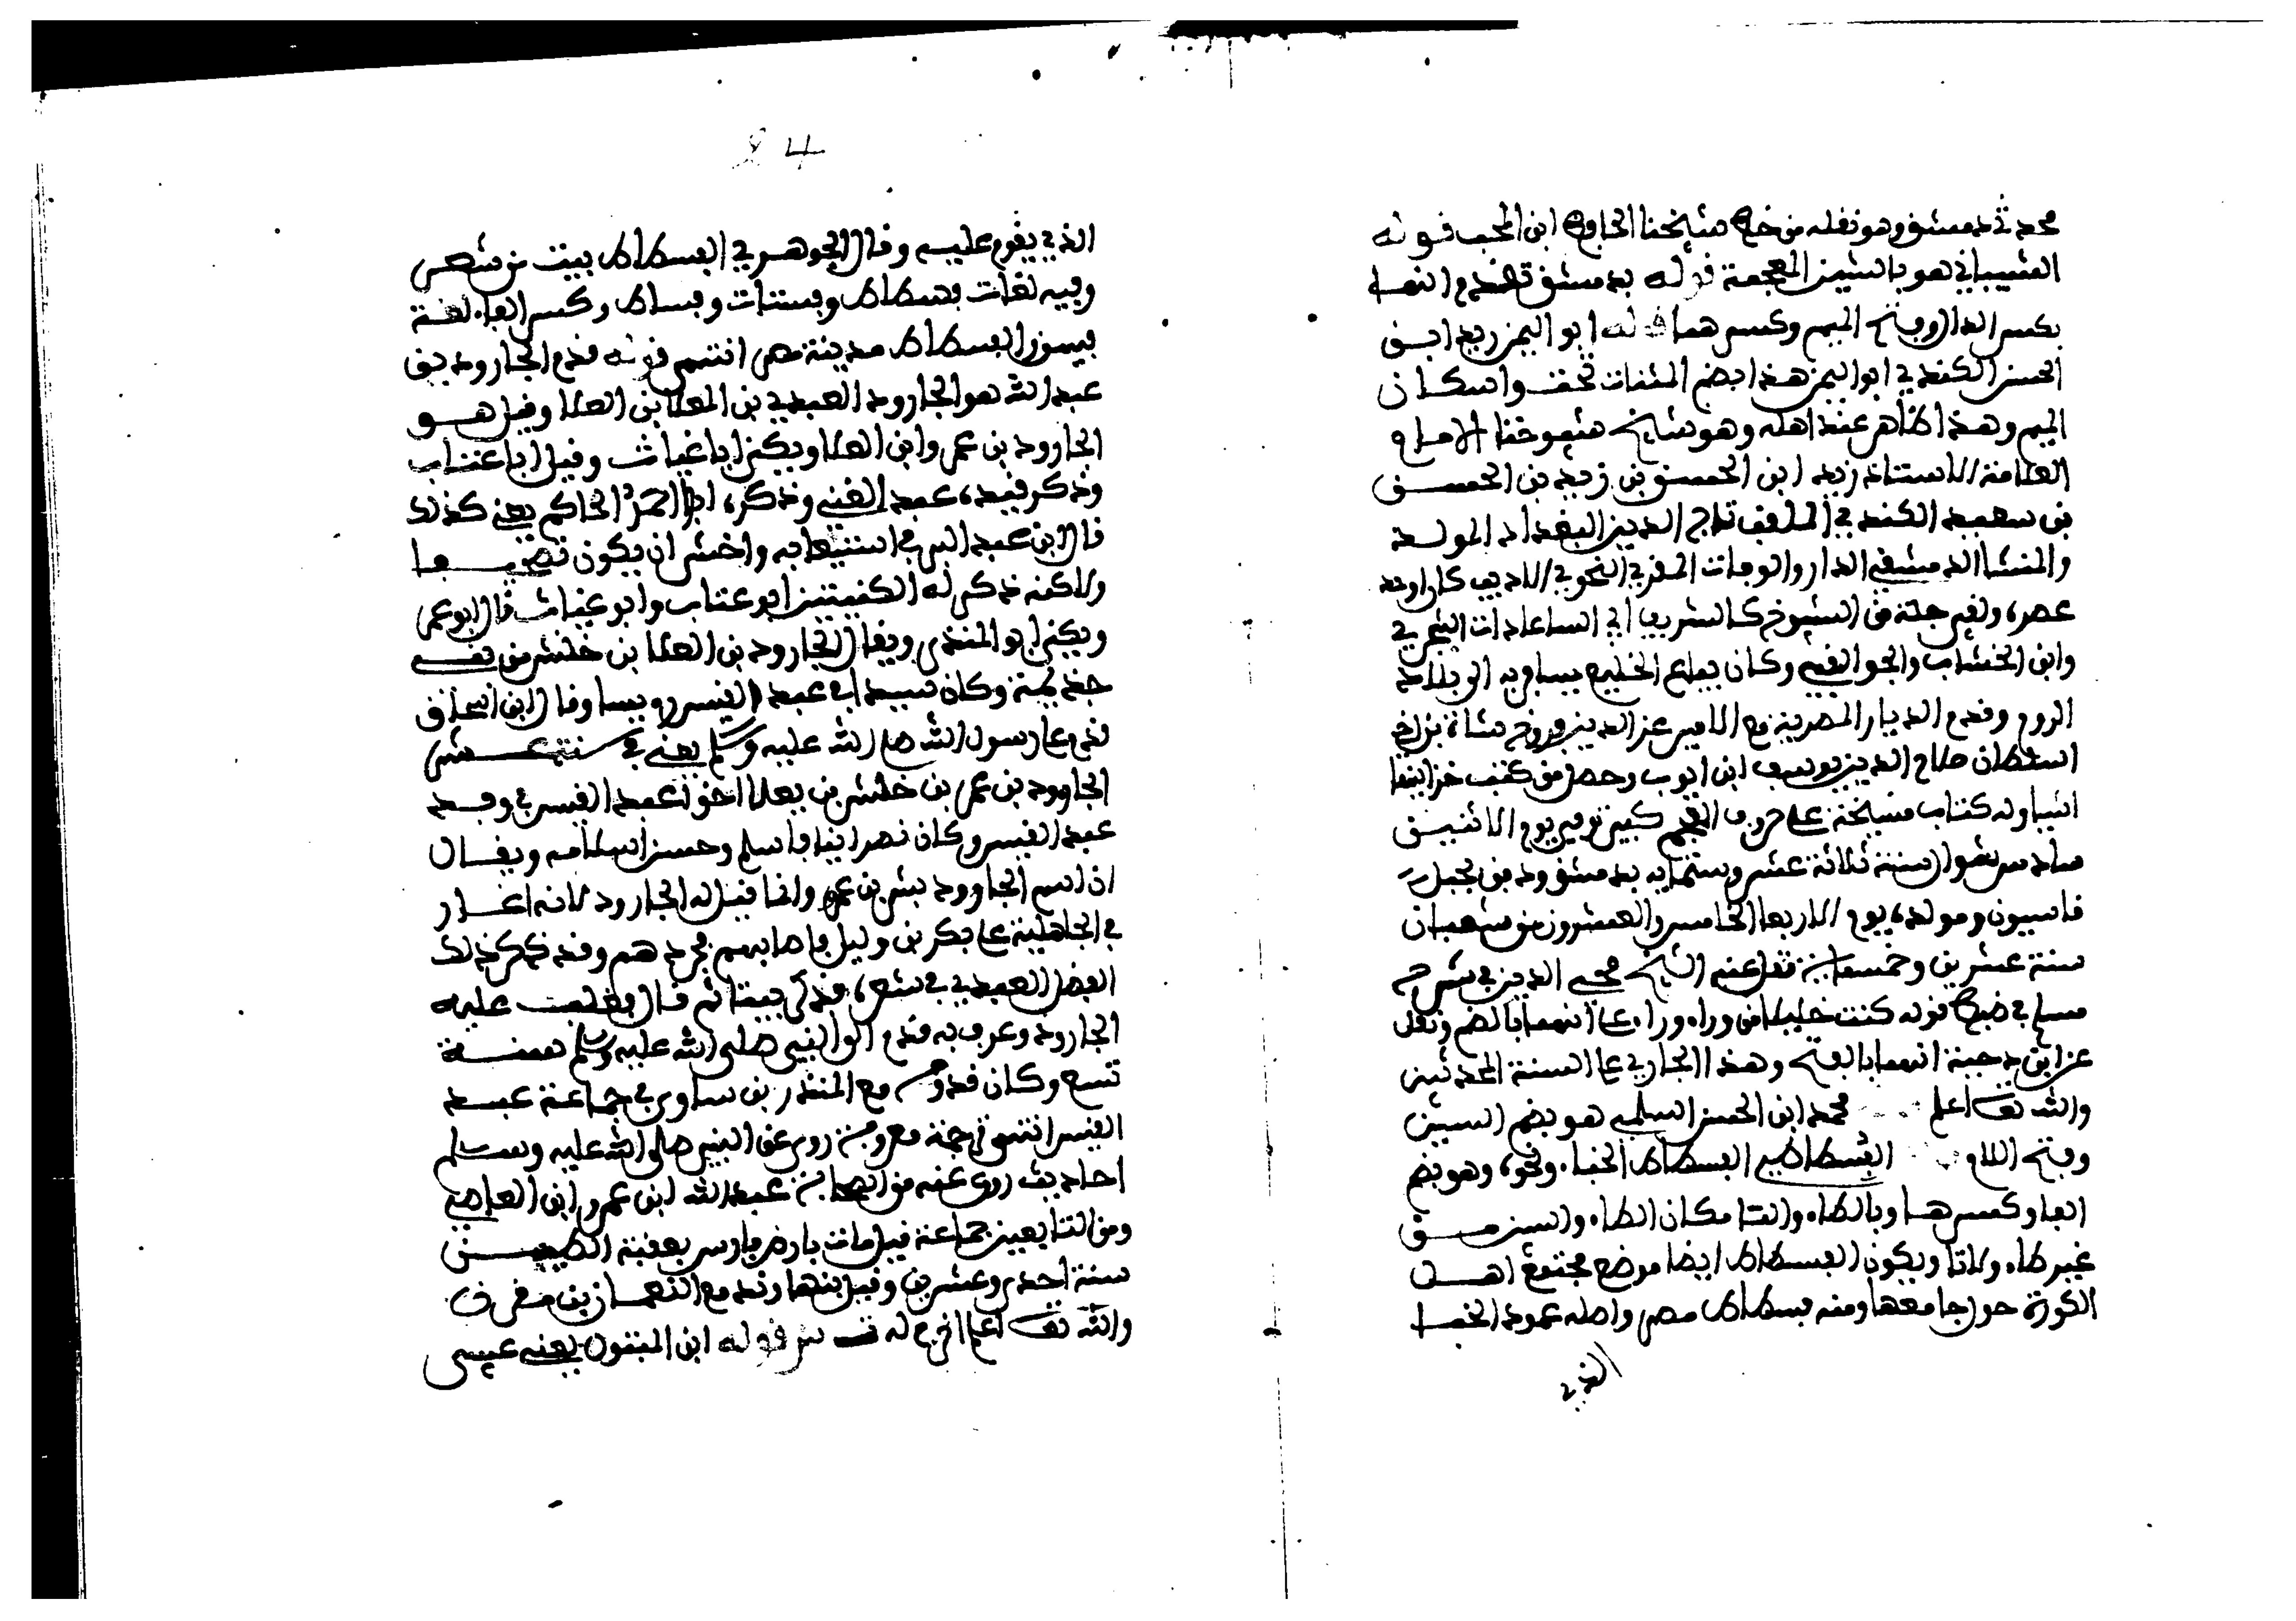 محدثي دمشق وهو نقله من خط شيخنا الحافظ ابن المحب قوله
الشيباني هو بالشين المعجمة قوله بدمشق تقدم انها
بكسر الدال وفتح الميم وكسرهما قوله ابو اليمن زيد ابن
الحسن الكندي ابو اليمن هذا بضم المثنات تحت واسكان
الميم وهذا ظاهر عند اهله وهو شيخ شيوخنا الامام
العلامة الاستاذ زيد ابن الحسن بن زيد بن الحسن
بن سعيد الكندي الملقب تاج الدين البغداد المولد
والمنشا الدمشقي الدار والوفات المقري النحوي الاديب كان اوحد
عصره ولقي جلة من الشيوخ كالشريف ابي الساعادات الشجري
وابن الخشاب والجواليقي وكان يبتاع الخليع يسافر به الى بلاد
الروم وقدم الديار المصرية مع الامير عز الدين فروخ شاه بن اخ
السلطان صلاح الدين يوسف ابن ايوب وحصل من كتب خزاينها
اشيا وله كتاب مشيخة على حروف المعجم كبير توفي يوم الاثنين
سادس شوال سنة ثلاثة عشر وستماية بدمشق ودفن بجبل
قاسيون ومولده يوم الاربعا الخامس والعشرون من شعبان
سنة عشرين وخمسماية نقل عنه الشيخ محي الدين في شرح
مسلم في ضبط قوله كنت خليلا من وراء وراء على انهما بالضم ونقل
عن ابن دحية انهما بالفتح وهذا الجاري على السنة المحدثين
والله تع اعلم محمد ابن الحسن السلمي هو بضم السين
وفتح اللام الفسطاطي الفسطاط الخبا ونحوه وهو بضم
الفا وكسرها وبالطاء والتا مكان الطاء والسن من
غير طاء ولا تا ويكون الفسطاط ايضا موضع مجتمع اهل
الكورة حول جامعها ومنه فسطاط مصر واصله عمود الخبا
الذي
84
الذي يقوم عليه وقال الجوهري الفسطاط بيت من شعر
وفيه لغات فسطاط وفستات وفساط وكسر الفا لغة
فيهن والفسطاط مدينة مصر انتهى قوله قدم الجارود بن
عبد الله هو الجارود العبدي بن المعلا بن العلا وقيل هو
الجارود بن عمر وابن العلا ويكنى ابا غياث وقيل ابا عتاب
وذكر فيه عبد الغني وذكره ابو احمد الحاكم يعني كذلك
قال ابن عبد البر في استيعابه واخشى ان يكون تصحيفا
ولاكنه ذكر له الكنيتين ابو عتاب وابو غياث قال ابو عمر
ويكنى ابو المنذر ويقال الجارود بن العلا بن خنش من
جذيمة وكان سيدا في عبد القيس رويسا وقال ابن اسحاق
قدم على رسول الله صلى الله عليه وسلم يعني في سنة عشر
الجارود بن عمر بن خنش بن يعلا اخو عبد القيس في وفد
عبد القيس وكان نصرانيا فاسلم وحسن اسلامه ويقال
ان اسم الجارود بشر بن عمرو وانما قيل له الجارود لانه اغار
في الجاهلية على بكر بن وايل فاصابهم فجردهم وقد ذكر ذلك
المفضل العبدي في شعره فذكر بيتا ثم قال فغلبت عليه
الجارود وعرف به قدم الى النبي صلى الله عليه وسلم سنة
تسع وكان قدومه مع المنذر بن ساوى في جماعة عبد
القيس انتهى ترجمة معروفة روى عن النبي صلى الله عليه وسلم
احاديث روى عنه من الصحابة عبد الله ابن عمرو ابن العاصي
ومن التابعين جماعة قيل مات بارض فارس بعقبة الطين
سنة احدى وعشرين وقيل بنهاوند مع النعمان بن مقرن
والله تع اعلم اخرج له ت س قوله ابن المبتون يعني عيسى